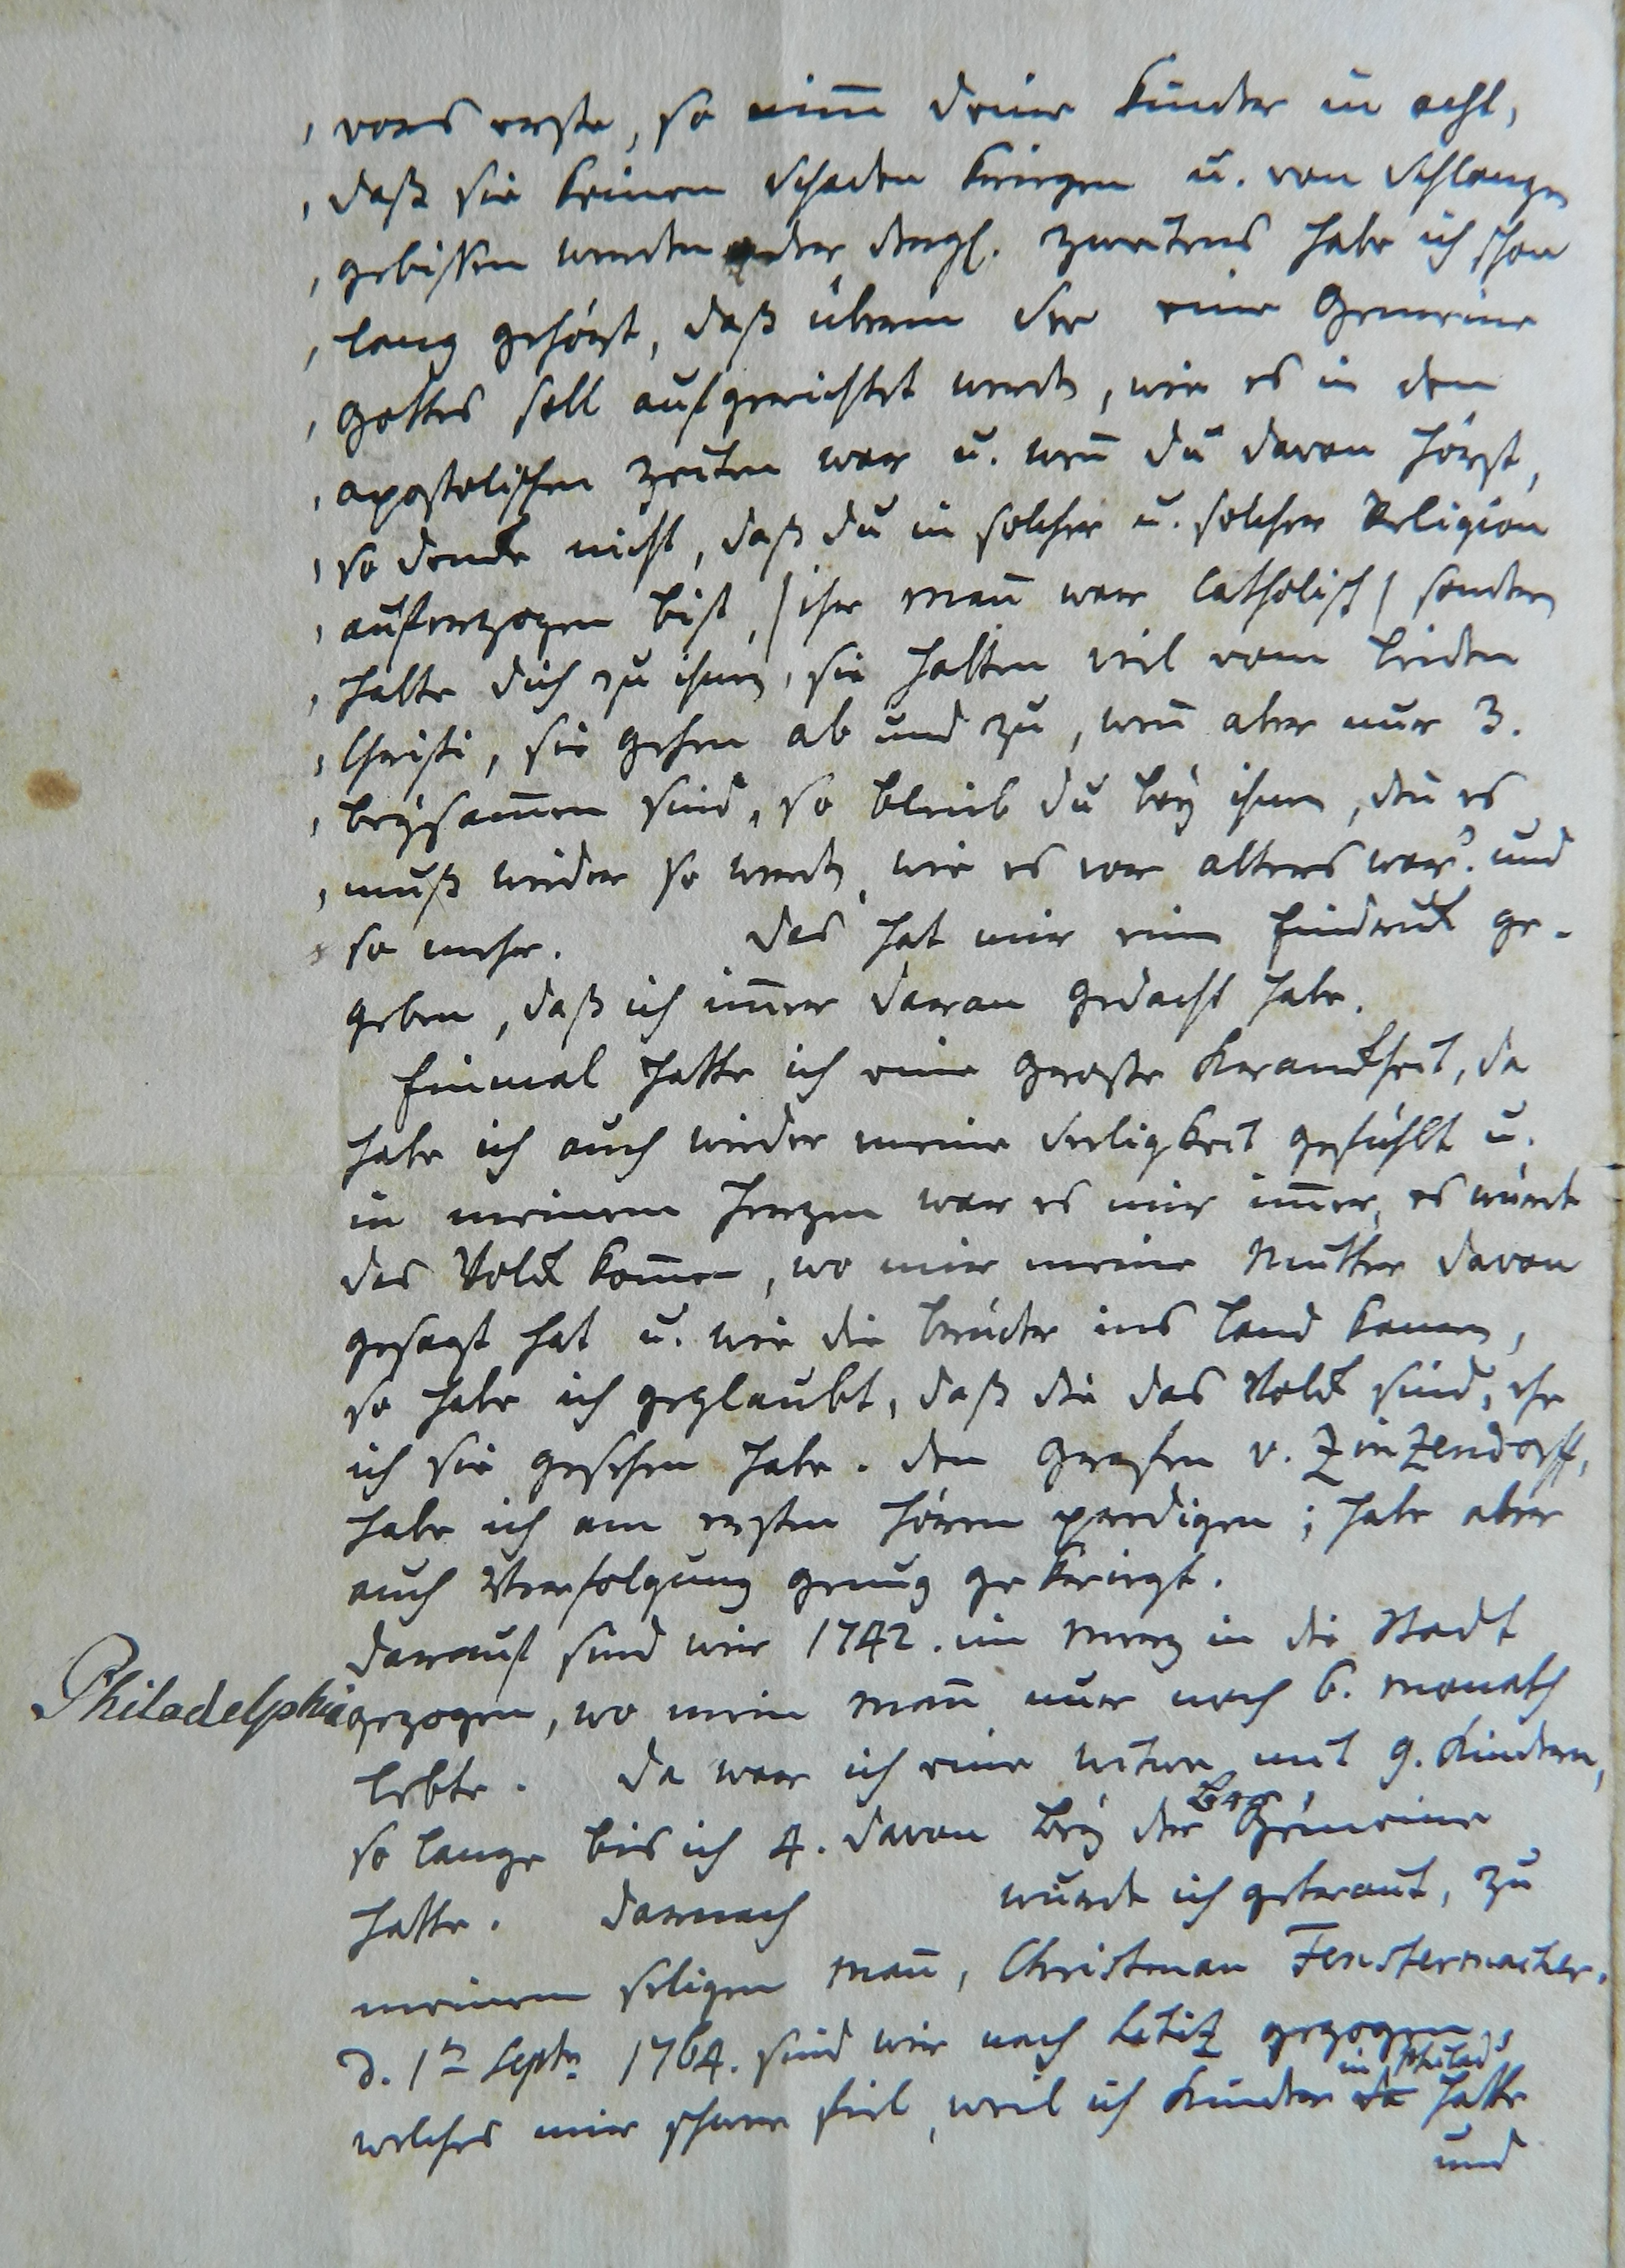 , vors erste, so nim̄ deine Kinder in acht,
, daß sie keinen Schaden kriegen u. von Schlangen
, gebißen werden oder dergl. zweitens habe ich schon
, lang gehört, daß überm See eine Gemeine
, Gottes soll aufgerichtet werdn, wie es in den
, apostolischen Zeiten war u. wen̄ du davon hörst,
, so dencke nicht, daß du in solcher u. solcher Religion
, auferzogen bist, /ihr Man̄ war Catholisch/ sondern
, halte dich zu ihnen, sie halten viel vom Leiden
, Christi, sie gehen ab und zu, wen̄ aber nur 3.
, beysam̄en sind, so bleib du bey ihnen, den̄ es
, muß wieder so werdn, wie es vor alters war. und
so mehr. Das hat mir einen Eindruck ge-
geben, daß ich im̄er daran gedacht habe.
Einmal hatte ich eine große Kranckheit, da
habe ich auch wieder meine Seeligkeit gefühlt u.
in meinem Herzen war es mir im̄er, es würde
das Volck kom̄en, wo mir meine Mutter davon
gesagt hat u. wie die Brüder ins Land kamen,
so habe ich geglaubt, daß die das Volck sind, ehe
ich sie gesehen habe. Den Grafen v. Zinzendorff,
habe ich am ersten hören predigen; habe aber
auch Verfolgung genug gekriegt.
Darauf sind wir 1742. im Merz in die Stadt
Philadelphia gezogen, wo mein Man̄ nur noch 6. Monath
lebte. Da war ich eine Witwe mit 9. Kindern,
so lange bis ich 4. davon bey der Br. Gemeine
hatte. Darnach wurde ich getraut, zu
meinem seligen Man̄, Christman Fenstermacher.
d. 1tn Septr. 1764. sind wir nach Litiz gezogen,
welches mir schwer fiel, weil ich Kinder da in Philad. hatte
und